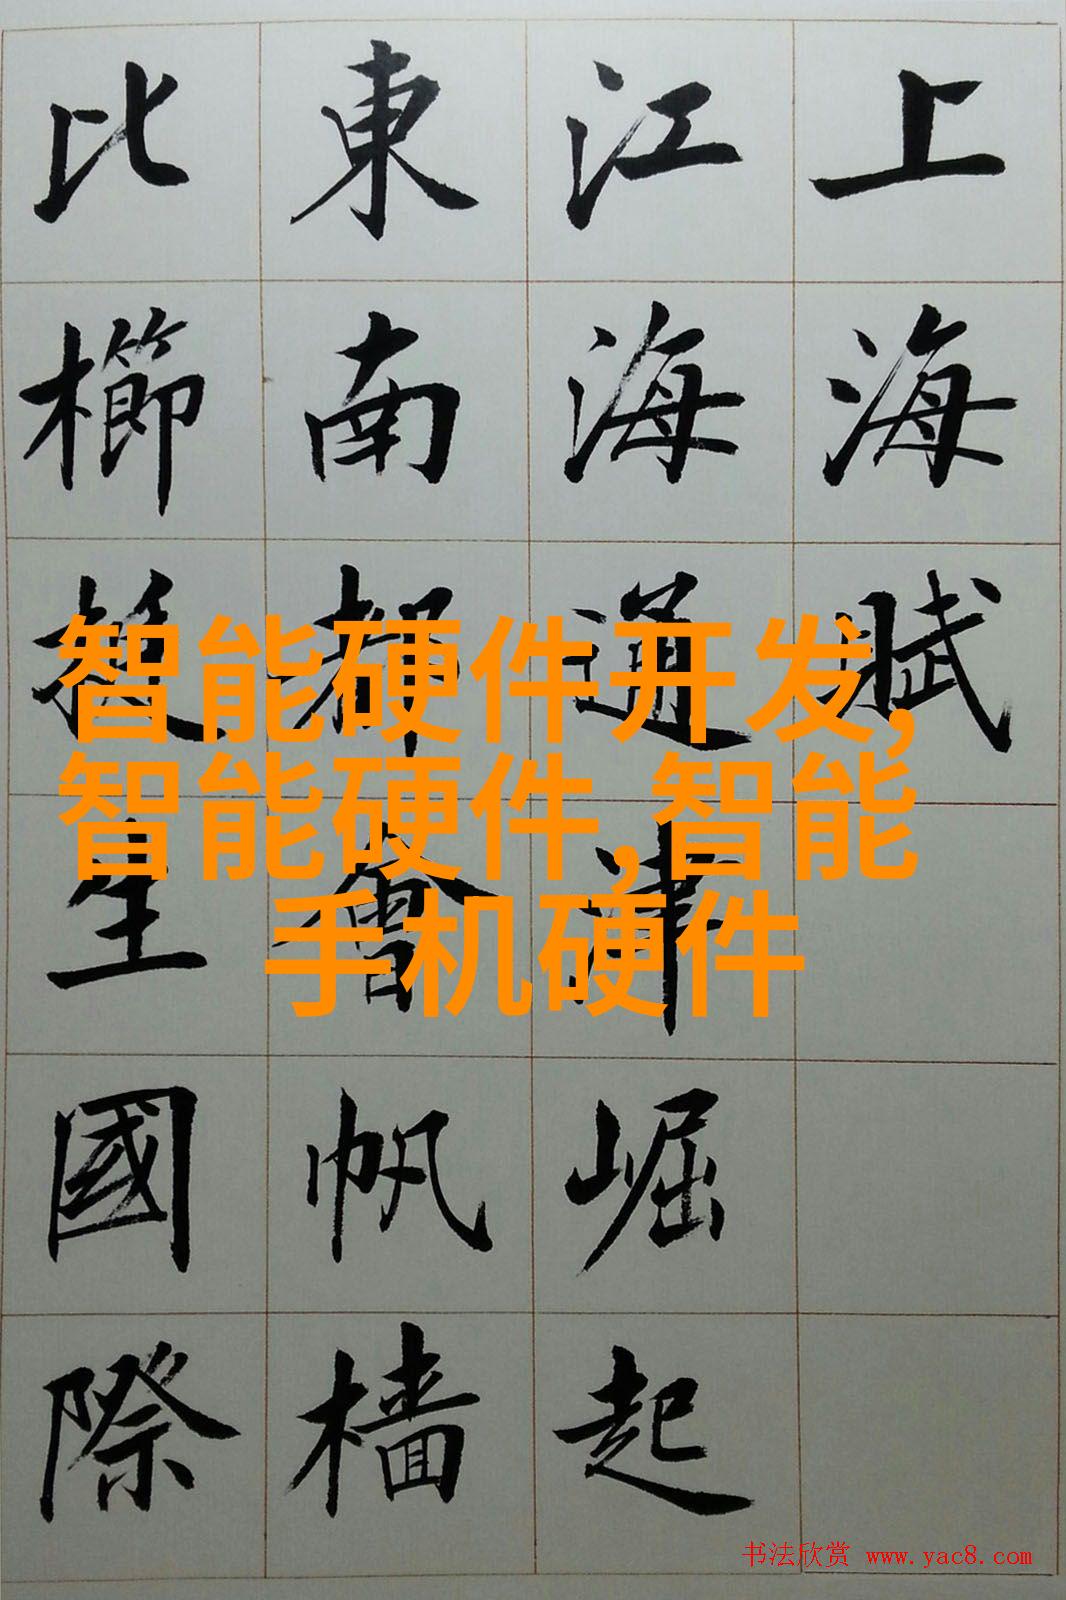 上海賦
江海通津崛起
東南都會帆檣
比櫛生國際
智能硬件开发,
智能硬件,智能
手机硬件
书法欣赏 www.yac8.com